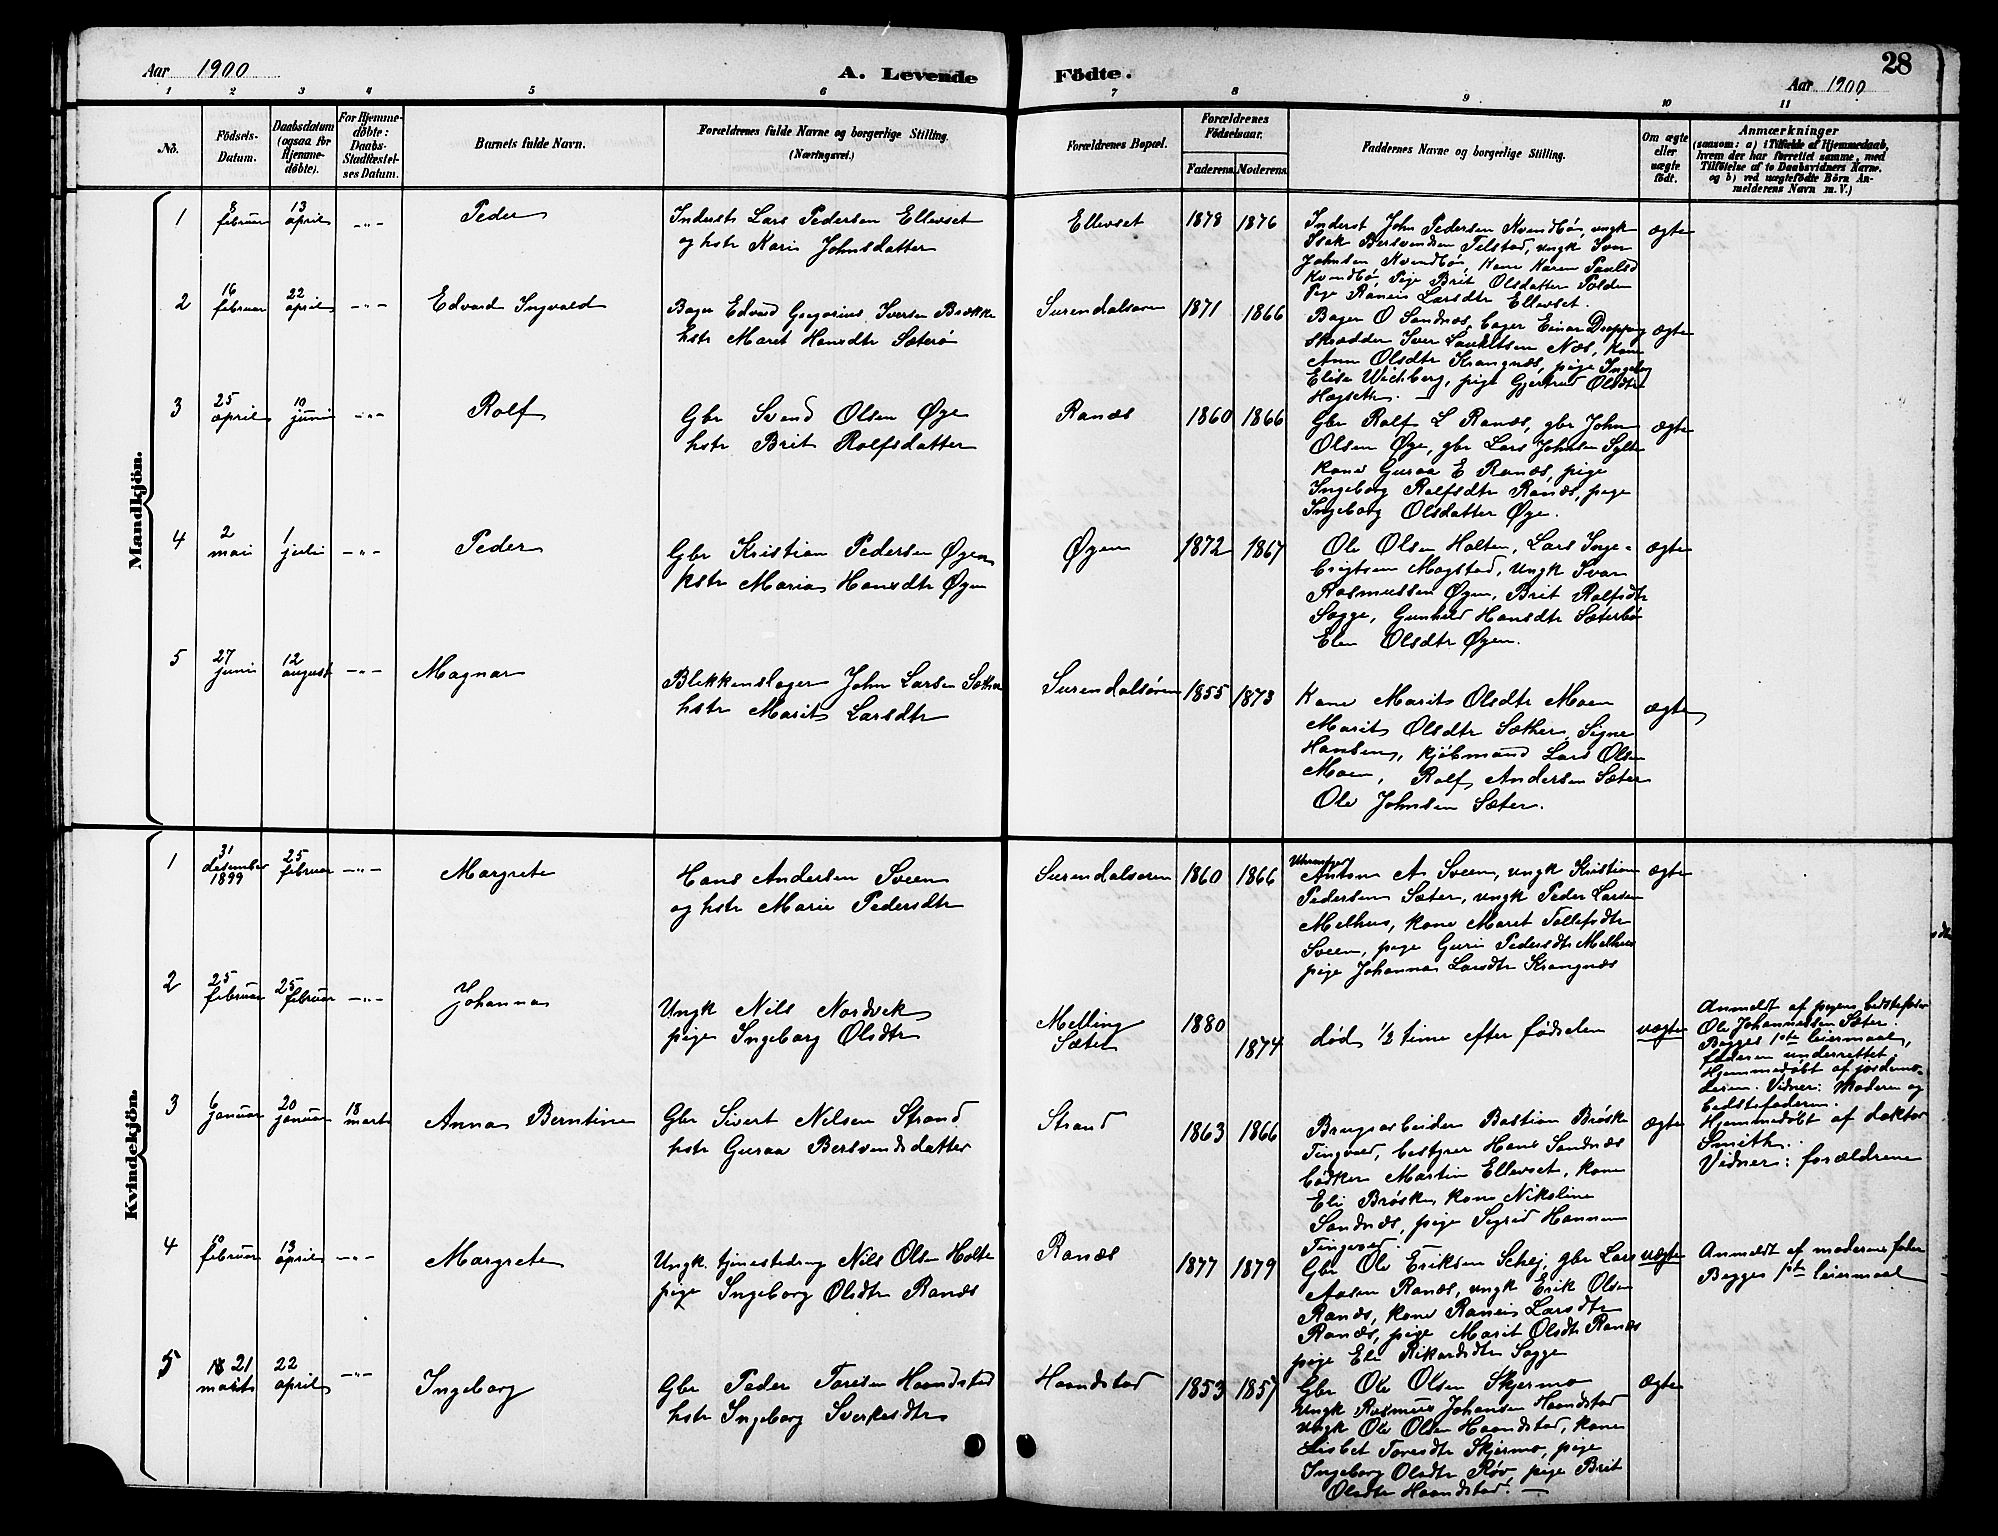 Aar 1900
A. Levende Födte.
28
Aar 1900
1 2 3 4 5 6 7 8 9 10 11
No.
Födsels-Datum.
Daabsdatum (ogsaa for Hjemmedöbte).
For Hjemmedöbte: Daabs-Stadfæstelses Datum.
Barnets fulde Navn.
Forældrenes fulde Navne og borgerlige Stilling. (Næringsvei.)
Forældrenes Bopæl.
Forældrenes Födselsaar.
Faderens Moderens
Faddernes Navne og borgerlige Stilling.
Om ægte eller uægte födt.
Anmærkninger
(saasom: a) i Tilfælde af Hjemmedaab, hvem der har forrettet samme, med Tilföielse af to Daabsvidners Navne. og b) ved uægtefödte Börn Anmelderens Navn m. V.)
Mandkjön.
1
8 februar
13 april
-"-
Peder
Inderst Lars Pedersen Ellevset
og hstr Kari Johnsdatter
Ellevset
1878 1876
Inderst John Pedersen Kvendbø, ungk
Isak Bersvendsen Telstad, ungk Ivar
Johnsen Kvendbø, Kone Karen Paulsd
Kvendbø, Pige Brit Olsdatter Polden
Pige Ranei Larsdtr Ellevset.
ægte
2
16 februar
22 april
-"-
Edvard Ingvald
Bager Edvard Gregorius Iversen Brække
hstr Maret Hansdtr Sæterø
Surendalsøren
1871 1866
Bager O Sandnæs, bager Einar Droppng
Skrædder Iver Lauritsen Næs, kone
Ann Olsdtr Krangnæs, pige Ingeborg
Elise Wichberg, pige Gjertrud Olsdtr
Hagseth.
ægte
3
25 april
10 juni
-"-
Rolf
Gbr Svend Olsen Øye
hstr Brit Rolfsdatter
Ranæs
1860 1866
Gbr Rolf L Ranæs, gbr John
Olsen Øye, gbr Lars Johnsen Sylte
kone Guraa E Ranæs, pige
Ingeborg Rolfsdtr Ranæs, pige
Ingeborg Olsdatter Øye.
ægte
4
2 mai
1 juli
-"-
Peder
Gbr Kristian Pedersen Øyen
hstr Maria Hansdtr Øyen
Øyen
1872 1867
Ole Olsen Holten, Lars Inge-
brigtsen Mogstad, ungk Ivar
Rasmussen Øyen, Brit Rolfsdtr
Sogge, Gunhild Hansdtr Sæterbø
Elen Olsdtr Øyen.
ægte
5
27 juni
12 august
-"-
Magnar
Blikkenslager John Larsen Sæther
hstr Marit Larsdtr
Surendalsøren
1855 1873
Kone Marit Olsdtr Moen
Marit Olsdtr Sæther, Signe
Hansen, kjøbmand Lars Olsen
Moen, Rolf Andersen Sæter
Ole Johnsen Sæter.
ægte
Kvindekjön.
1
31 desember 1899
25 februar
-"-
Margrete
Hans Andersen Sveen
og hstr Marie Pedersdtr
Surendalsøren
1860 1866
Anton A Sveen, ungk Kristian
Pedersen Sæter, ungk Peder Larsen
Melhus, kone Maret Tollefsdtr
Sveen, pige Guri Pedersdtr Melhus
pige Johanna Larsdtr Krangnæs
ægte
2
25 februar
25 februar
-"-
Johanna
Ungk Nils Nordvik
pige Ingeborg Olsdtr
Melling
Sæter
1880
1874
død 1/2 time efter fødselen
uægte
Anmeldt af pigens bedstefader
Ole Johannessen Sæter.
Begges 1ste leiermaal,
faderen underrettet.
Hjemmedøbt af jordemo-
deren. Vidner: Moderen og
bedstefaderen.
3
6 januar
20 januar
18 marts
Anna Berntine
Gbr Sivert Nilsen Strand
hstr Guraa Bersvendsdatter
Strand
1863 1866
Brugsarbeider Bastian Brøske
Tingvold, bestyrer Hans Sandnæs
bødker Martin Ellevset, kone
Eli Brøske, kone Nikoline
Sandnæs, pige Sigrid Hannem
Tingvold.
ægte
Hjemmedøbt af doktor
Smith.
Vidner: forældrene
4
10 februar
13 april
-"-
Margrete
Ungk. tjenestedreng Nils Olsen Holte
pige Ingeborg Olsdtr Ranæs
Ranæs
1877 1879
Gbr Ole Eriksen Schej, gbr Lars
Aasen Ranæs, ungk Erik Olsen
Ranæs, kone Ranei Larsdtr
Ranæs, pige Marit Olsdtr Ranæs
pige Eli Rikardsdtr Sogge
uægte
Anmeldt af moderens fader
Begges 1ste leiermaal
5
21 marts
22 april
-"-
Ingeborg
Gbr Peder Toresen Haandstad
hstr Ingeborg Sverkesdtr
Haandstad
1853 1857
Gbr Ole Olsen Skjermo
Ungk Rasmus Johansen Haandstad
ungk Ole Olsen Haandstad, kone
Lisbet Toresdtr Skjermo, pige
Ingeborg Olsdtr Røv, pige Brit
Olsdtr Haandstad.
ægte